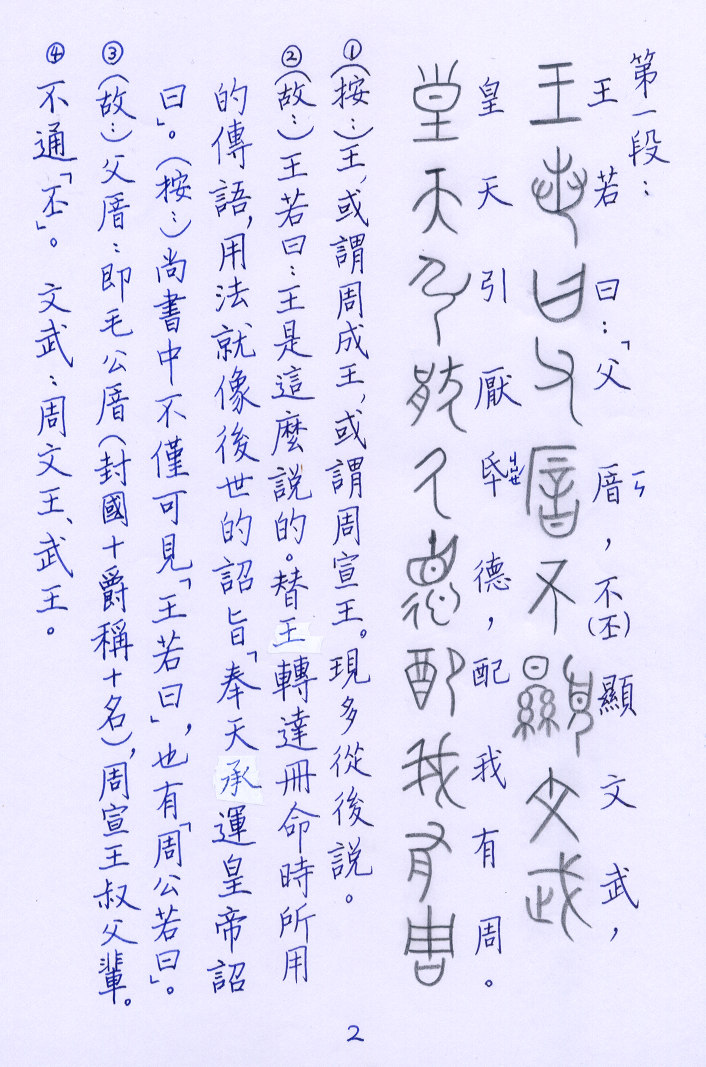 第一段：
王若曰：「父厝ㄣ，不(丕)顯文武，
王若曰父厝不顯文武
皇天引厭氒ㄐㄩㄝ德，配我有周。
皇天引厭氒德配我有周
①（按：）王，或謂周成王，或謂周宣王。現多從後說。
②（故：）王若曰：王是這麼説的。替王轉達冊命時所用
的傳語，用法就像後世的詔旨「奉天承運皇帝詔
曰」。（按：）尚書中不僅可見「王若曰」，也有「周公若曰」。
③（故：）父厝：即毛公厝（封國十爵稱十名），周宣王叔父輩。
④不通「丕」。文武：周文王、武王。
2